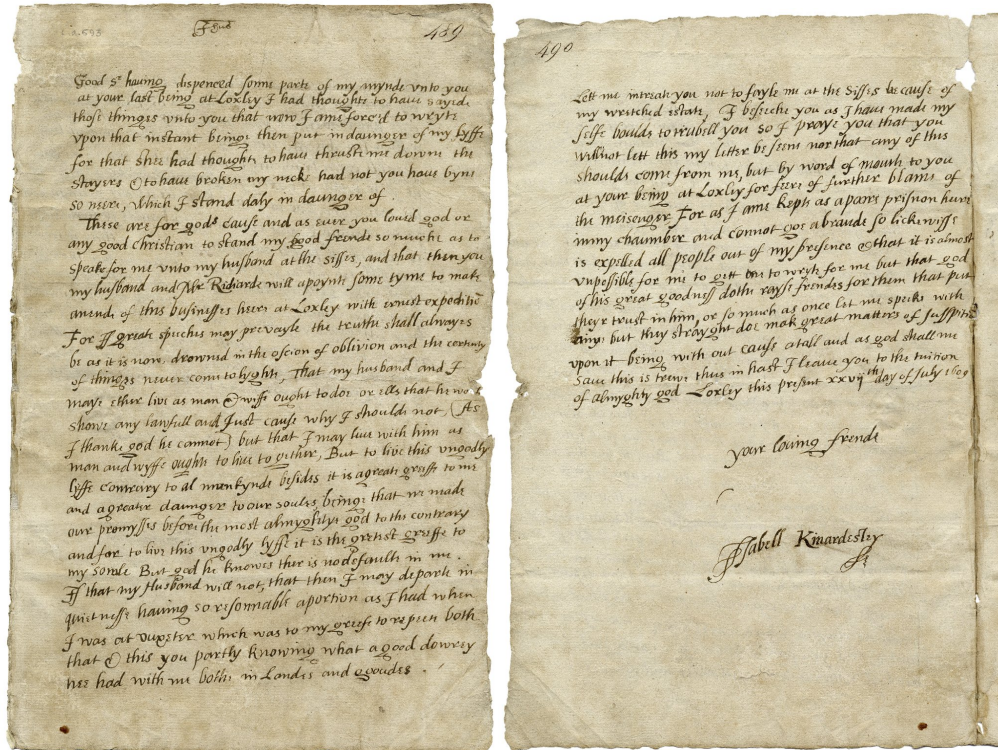 Jhus
489
Good Sr having dispenced some parte of my mynde vnto you
at your last being at Loxley I had thought to have sayed
those thinges vnto you that now I ame forced to wryte
vpon that instant beinge then put in daunger of my lyffe
for that shee had thought to have thrust me downe the
stayers & to have broken my necke had not you have byne
so neere, which I stand daly in daunger of.
These are for gods cause and as ever you loved god or
any good christian to stand my good frende so muche as to
speake for me vnto my husband at the sisses, and that then you
my husband and Mr Richarde will apoynt some tyme to make
anende of this businesses heere at Loxley with ernest expeditio
For If great speches may prevayle the truthe shall alwayes
be as it is now drowned in the oscion of oblivion and the certenty
of thinges never come to lyght, That my husband and I
maye ether live as man & wiffe ought to doe or ells that he
showe any lawfull and Just cause why I should not, (As
I thanke god he cannot) but that I may live with him as
man and wyffe ought to live to gether, But to live this vngodly
lyffe contrary to al mankynde besides it is a great greffe to me
and a greater daunger to our soules beinge that we made
our promysses before the most almyghtye god to the contrary
and for to live this vngodly lyffe it is the gretist greeffe to
my sowle. But god he knowes ther is no defaulte in me.
If that my Husband will not, that then I may departe in
quietnesse having so resonnable a portion as I had when
I was at which was to my greefe to both
that & this you partly knowing what a good dowrey
hee had with me bothe in Landes and goodes.
490
Lett me intreate you not to fayle me at the Sisses because of
my wretched estate, I beseche you as I have made my
selfe boulde to trubell you so I praye you that you
will not lett this my letter be seene nor that any of this
shoulde come from me, but by word of mouth to you
at your being at Loxley for feere of further blame of
the messenger For as I ame kepte as a prisnon heere
in my chaumber and connot goe abraude so lickewisse
is expelled all people out of my presence so that it is almost
vnpossible for me to gett one to wryte for me but that god
of his great goodness dothe raysse frendes for them that put
theyr trust in him, or so much as once let me speeke with
any: but they strayght doe make great matters of
vpon it being with out cause at all and as god shall me
save this is trewe thus in hast I leave you to the tuition
of almyghty god Loxley this present xxvijth day of July 1609
your loving frende
Isabell Kinardesley